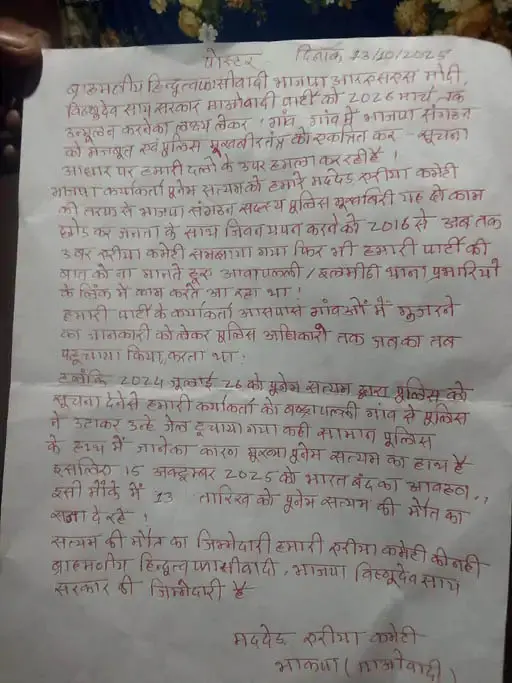 पोस्टर दिनांक 13/10/2025
ब्राहमणीय हिन्दुत्व फासीवादी भाजपा आरएसएस मोदी,
विष्णुदेव साय सरकार माओवादी पार्टी को 2026 मार्च तक
उन्मूलन करनेका लक्ष्य लेकर। गांव गांव में भाजपा संगठन
को मजबूत एवं पुलिस मुखबीर तंत्र को एकत्रित कर सूचना
आधार पर हमारी दलो के उपर हमला कर रही है।
भाजपा कार्यकर्ता पुनेम सत्यम को हमारे मददेड एरीया कमेटी
की तरफ से भाजपा संगठन सदस्य पुलिस मुखबिरी यह दो काम
छोड कर जनता के साथ जिवन यापन करने को 2016 से अब तक
उ बर एरीया कमेटी समझाया गया फिर भी हमारी पार्टी की
बात को ना मानते हुए आवापल्ली / इलमीडी थाना प्रभारियों
के लिंक में काम करते आ रहा था।
हमारी पार्टी के कर्यकर्ता आसपास गांवओं में गुजरने
का जानकारी को लेकर पुलिस अधिकारी तक जब का तब
पहूचाया किया करता था।
हलांकि 2024 जुलाई 26 को पुनेम सत्यम द्वारा पुलिस को
सूचना देनेसे हमारी कर्यकर्ता को गांव से पुलिस
ने उठाकर उन्हे जेल हूचाया गया कही सामान पुलिस
के हाथ में जानेका कारण मुख्य पुनेम सत्यम का हाथ है
इसलिए 15 अक्टूम्बर 2025 को भारत बंद का आवहान,,
इसी मौके में 13 तारिख को पुनेम सत्यम की मौत का
सजा दे रहे।
सत्यम की मौत का जिम्मेदारी हमारी एरीया कमेटी की नही
ब्राहमणीय हिन्दुत्व फासीवादी, भाजपा विष्णुदेव साय
सरकार की जिम्मेदारी है
मददेड एरीया कमेटी
भाकपा (माओवादी)